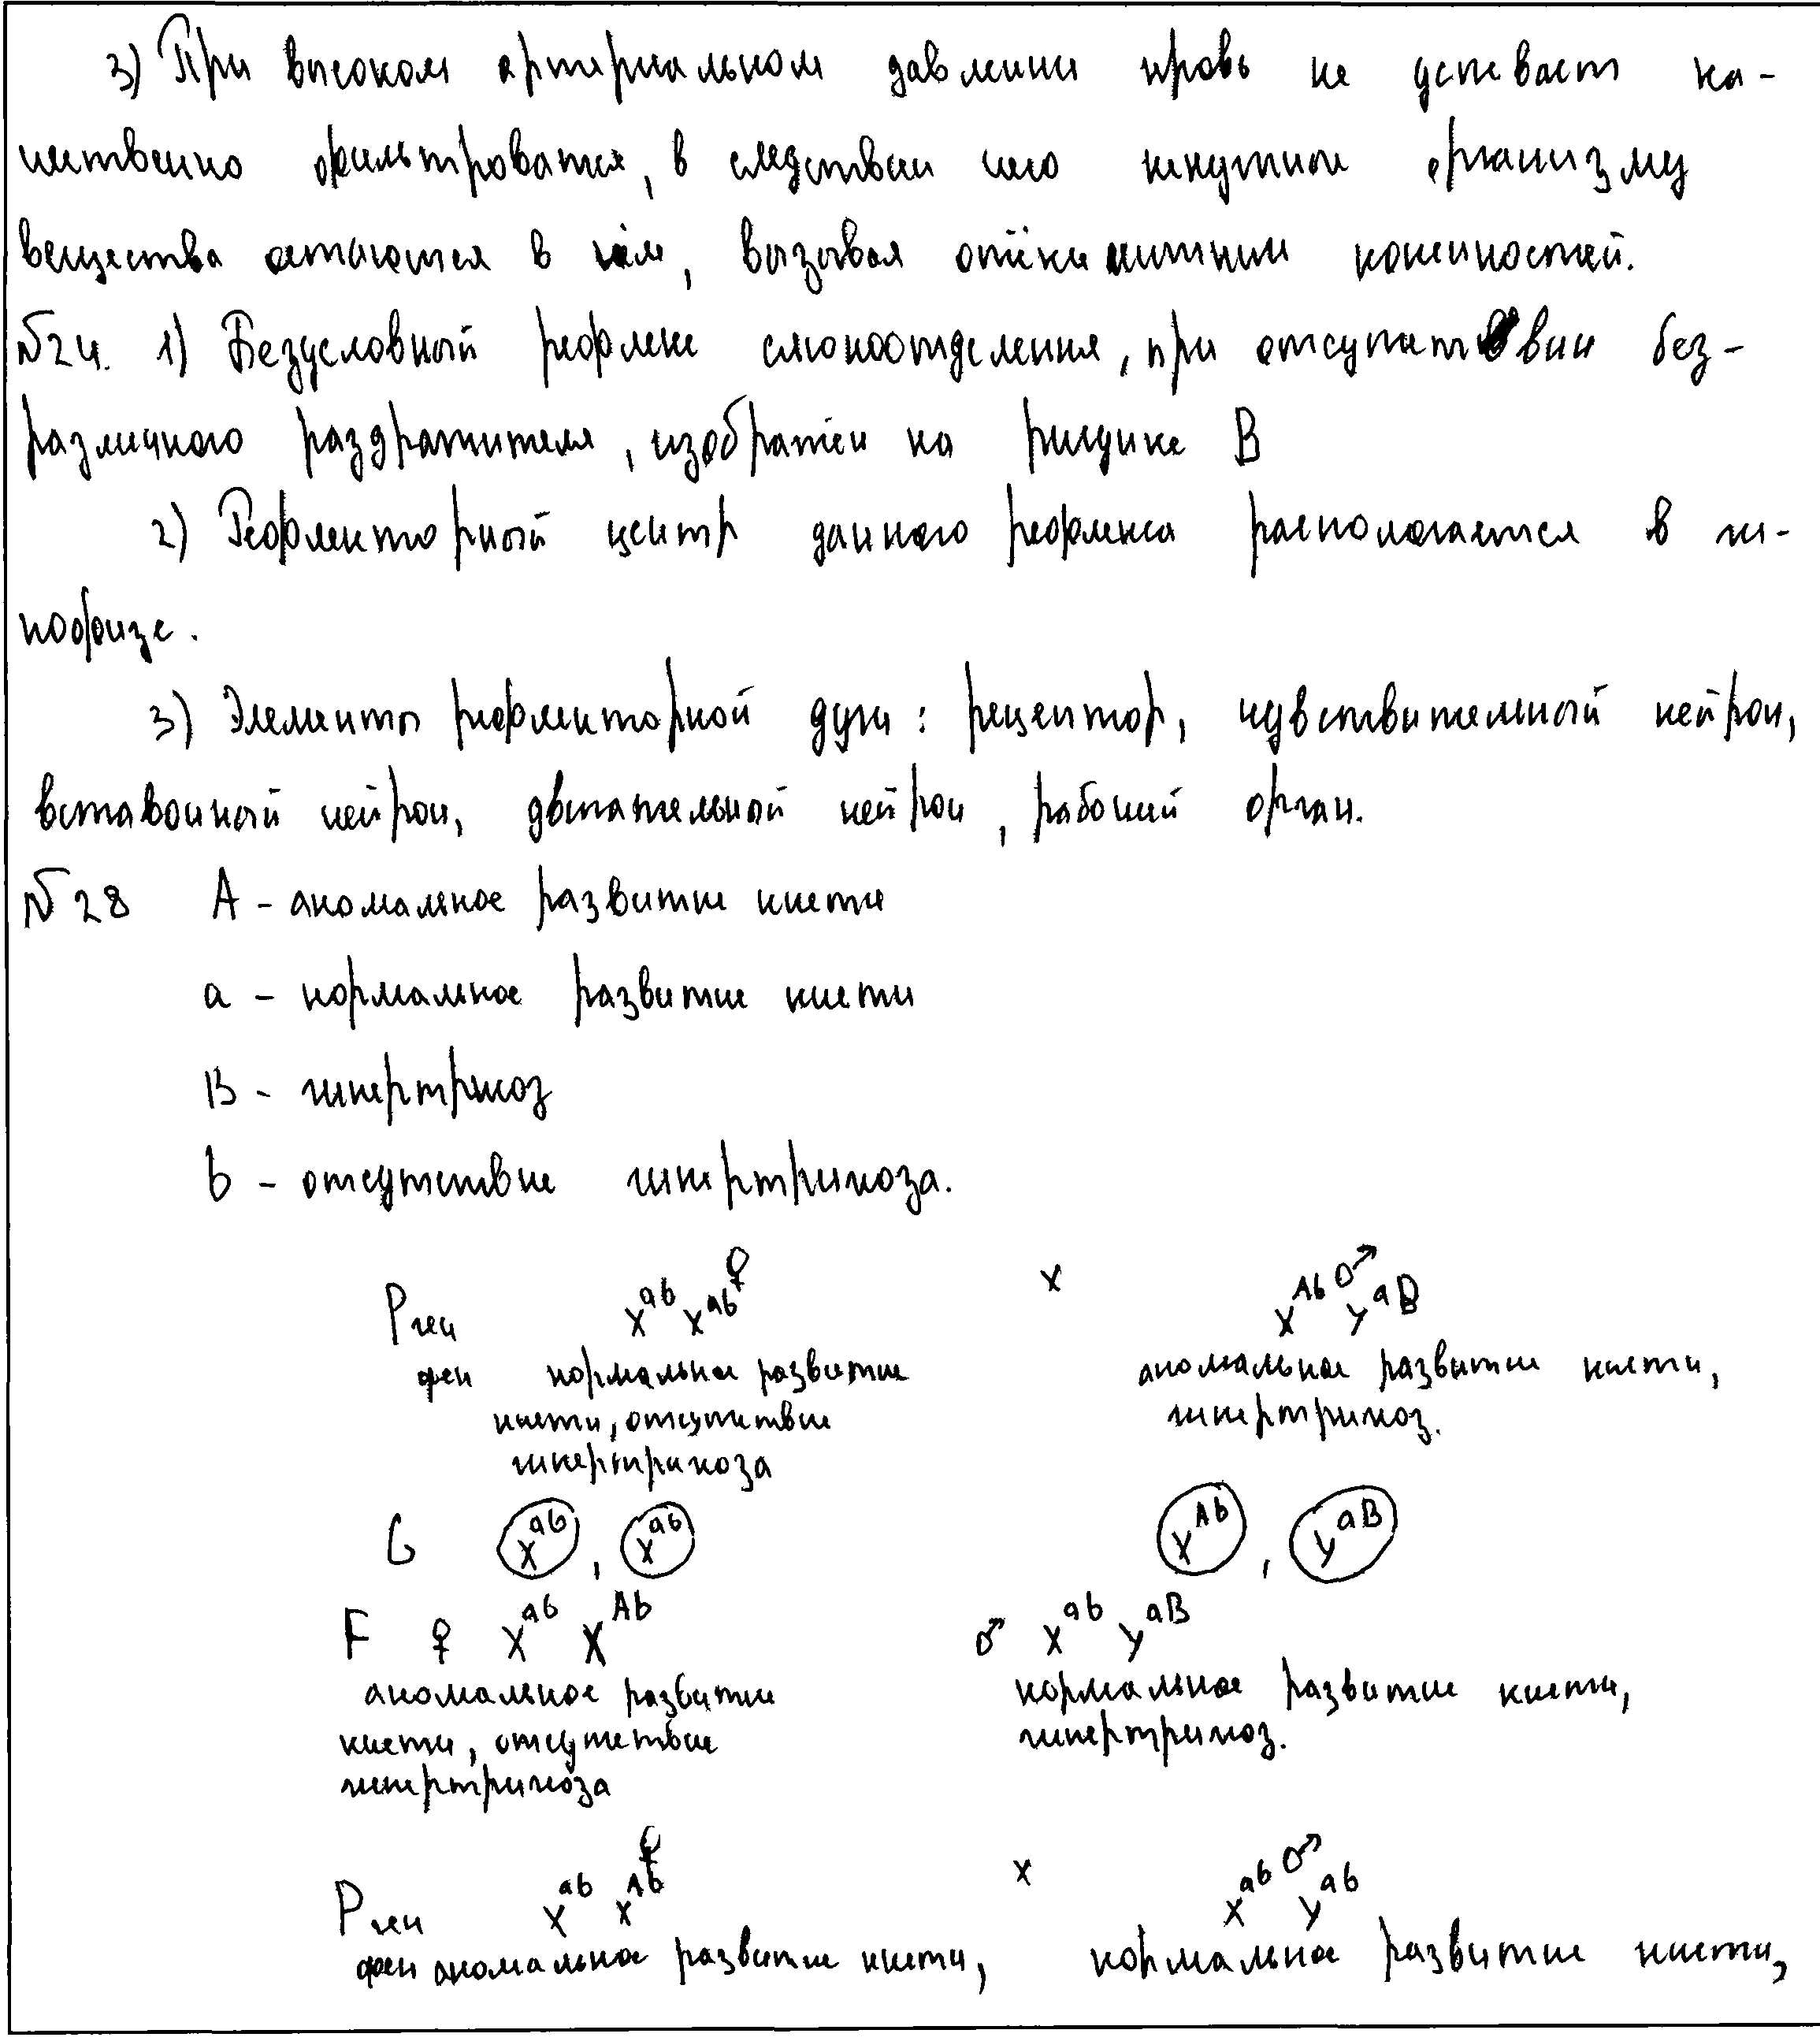 3) При высоком артериальном давлении кровь не успевает ка-
чественно фильтроватся, в следствии чего ненужные организму
вещества остаются в нём, вызывая отёки нижних конечностей.
№24. 1) Безусловный рефлекс слюноотделения, при отсутствии без-
различного раздражителя, изображён на рисунке В
2) Рефлекторный центр данного рефлекса располагается в ги-
пофизе.
3) Элементы рефлекторной дуги: рецептор, чувствительный нейрон,
вставочный нейрон, двигательный нейрон, рабочий орган.
№28 A - аномальное развитие кисти
a - нормальное развитие кисти
B - гипертрихоз
b - отсутствие гипертрихоза.
P ген X^ab X^ab ♀ x X^Ab ♂ Y^aB
фен нормальное развитие аномальное развитие кисти,
кисти, отсутствие гипертрихоз.
гипертрихоза
G X^ab, X^ab X^Ab, Y^aB
F ♀ X^ab X^Ab ♂ X^ab Y^aB
аномальное развитие нормальное развитие кисти,
кисти, отсутствие гипертрихоз.
гипертрихоза
P ген X^ab X^Ab ♀ x X^ab ♂ Y^ab
фен аномальное развитие кисти, нормальное развитие кисти,